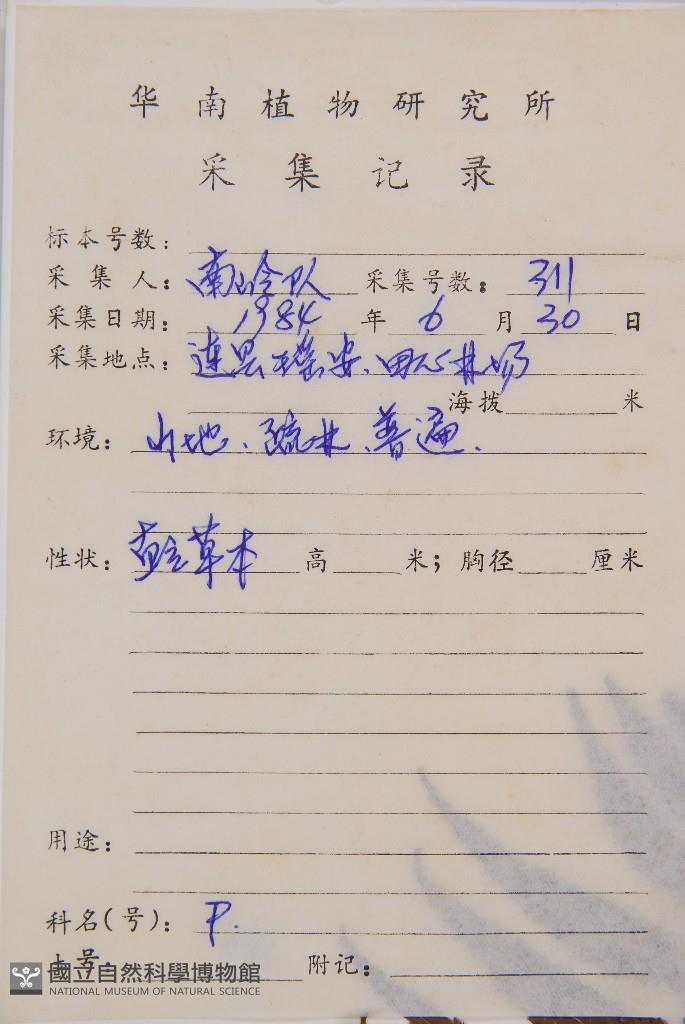 华南植物研究所
采集记录
标本号数:
采集人: 南岭队 采集号数: 311
采集日期: 1984年6月30日
采集地点: 连县瑶安、田心林场
海拨 米
环境: 山地、疏林、普遍.
性状: 直立草本 高 米; 胸径 厘米
用途:
科名(号): P.
土号 附记:
國立自然科學博物館
NATIONAL MUSEUM OF NATURAL SCIENCE